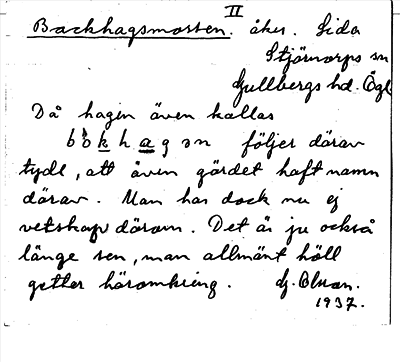 II
Backhagsmossen. åker. Lida
Stjärnorps sn
Gullbergs hd. Ögl
Då hagen även kallas
bòkhagən följer därav
tydl, att även gärdet haft namn
därav. Man har dock nu ej
vetskap därom. Det är ju också
länge sen, man allmänt höll
getter häromkring. G. Olson.
1937.